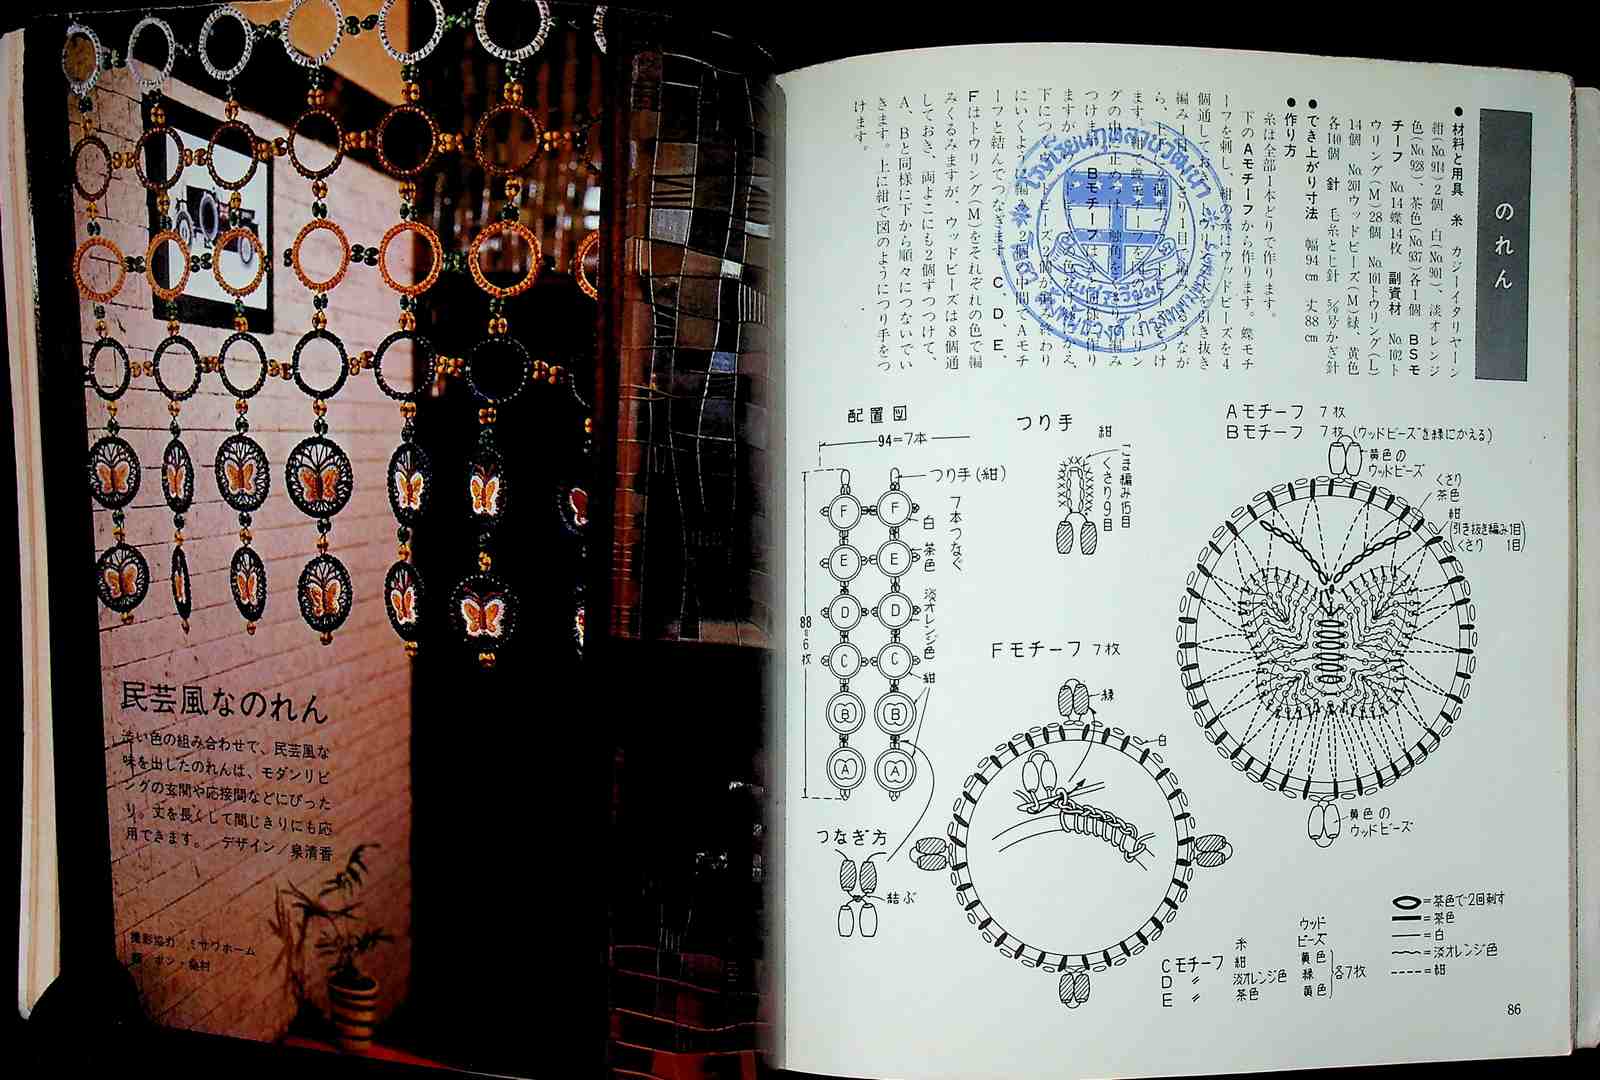 民芸風なのれん
渋い色の組み合わせで、民芸風な
味を出したのれんは、モダンリビ
ングの玄関や応接間などにぴった
り。丈を長くして間じきりにも応
用できます。 デザイン/泉清香
撮影協力/ミサワホーム
のれん
●材料と用具 糸 カジーイタリヤーン
紺(No.914)2個 白(No.901)、淡オレンジ
色(No.928)、茶色(No.937)各1個 BSモ
チーフ No.14蝶14枚 副資材 No.102ト
ウリング(M)28個 No.101トウリング(L)
14個 No.201ウッドビーズ(M)緑、黄色
各140個 針 毛糸とじ針 5/0号かぎ針
●でき上がり寸法 幅94cm 丈88cm
●作り方
糸は全部1本どりで作ります。
下のAモチーフから作ります。蝶モチ
ーフを刺し、紺の糸はウッドビーズを4
個通してお
編み1目
ら、
ます。
グの中
つけます。 Bモチーフは
ますが
下につ
にいくよ
ーフと結んでつなぎます。C、D、E、
Fはトウリング(M)をそれぞれの色で編
みくるみますが、ウッドビーズは8個通
しておき、両よこにも2個ずつつけて、
A、Bと同様に下から順々につないでい
きます。上に紺で図のようにつり手をつ
けます。
配置図
94=7本
つり手(紺)
7本つなぐ
F F 白
E E 茶色
D D 淡オレンジ色
C C 紺
B B
A A
88=6枚
つなぎ方
結ぶ
つり手
紺
こま編み15目
くさり9目
Aモチーフ 7枚
Bモチーフ 7枚(ウッドビーズを緑にかえる)
黄色の
ウッドビーズ
くさり
茶色
紺
(引き抜き編み1目
くさり 1目)
黄色の
ウッドビーズ
Fモチーフ 7枚
緑
白
糸 ウッドビーズ
Cモチーフ 紺 黄色
D 〃 淡オレンジ色 緑 各7枚
E 〃 茶色 黄色
=茶色で2回刺す
=茶色
=白
=淡オレンジ色
=紺
86